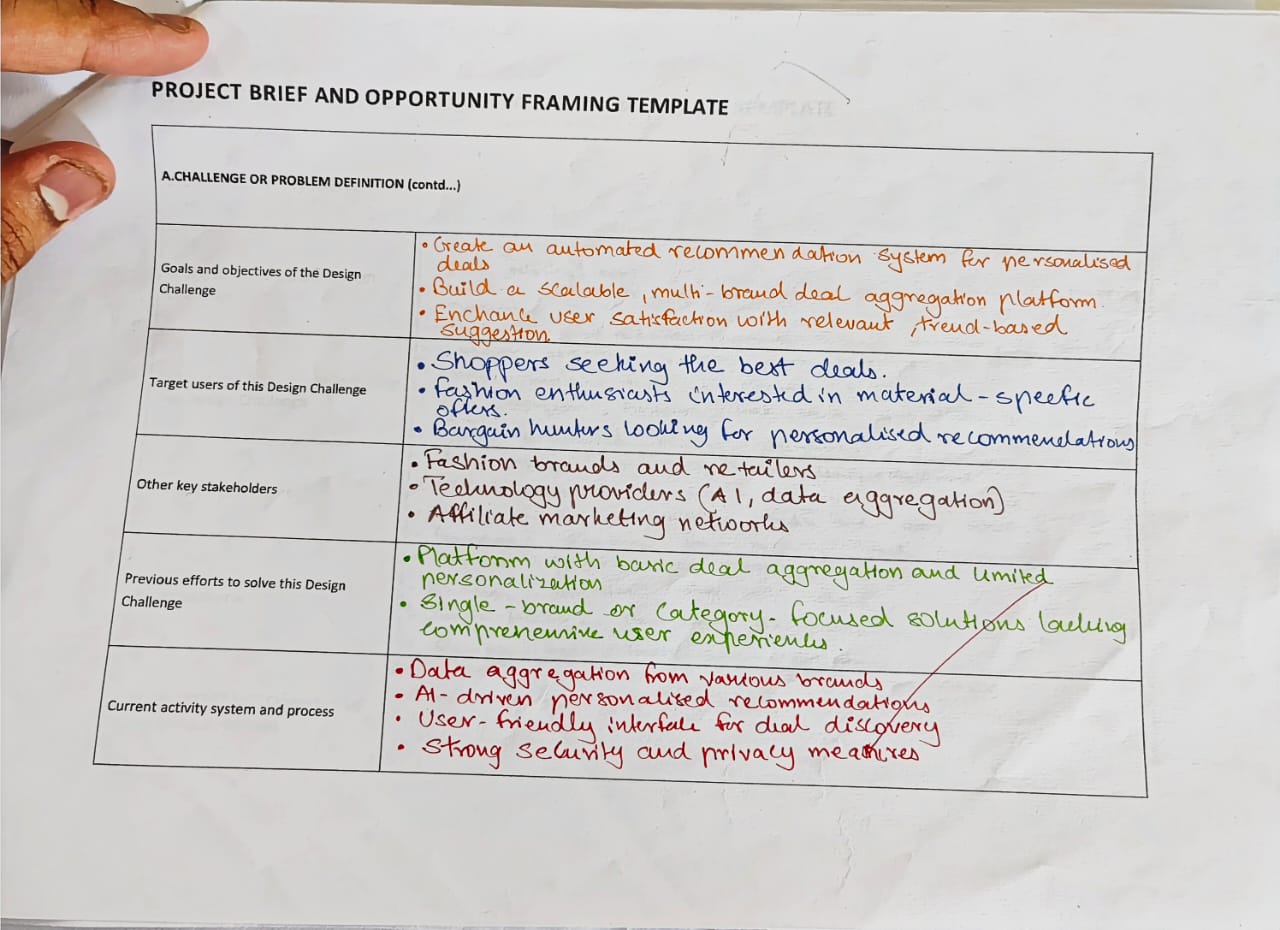 PROJECT BRIEF AND OPPORTUNITY FRAMING TEMPLATE
A.CHALLENGE OR PROBLEM DEFINITION (contd...)
Goals and objectives of the Design
Challenge
• Create an automated recommendation system for personalised
deals
• Build a scalable, multi-brand deal aggregation platform.
• Enchance user satisfaction with relevant, trend-based
suggestion.
Target users of this Design Challenge
• Shoppers seeking the best deals.
• Fashion enthusiasts interested in material-speefic
offers.
• Bargain hunters looking for personalised recommendations
Other key stakeholders
• Fashion brands and retailers
• Technology providers (AI, data aggregation)
• Affiliate marketing networks
Previous efforts to solve this Design
Challenge
• Platform with basic deal aggregation and limited
personalization
• Single-brand or category-focused solutions lacking
comprehensive user experiences.
Current activity system and process
• Data aggregation from various brands
• AI-driven personalised recommendations
• User-friendly interface for deal discovery
• Strong security and privacy measures